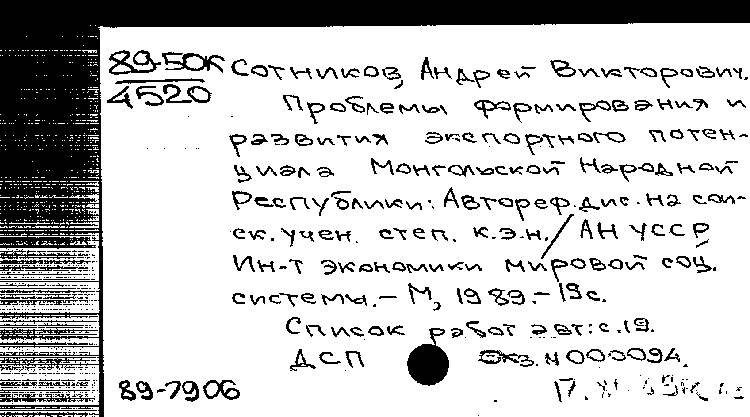 89-5ОК Сотников, Андрей Викторович.
4520 Проблемы формирования и
развития экспортного потен-
циала Монгольской Народной
Республики: Автореф. дис. на сои-
ск. учен. степ. к.э.н. / АН УССР
Ин-т экономики мировой соц.
системы. – М, 1989. – 19с.
Список работ авт: с.19.
ДСП Экз. N 000094.
89-7906